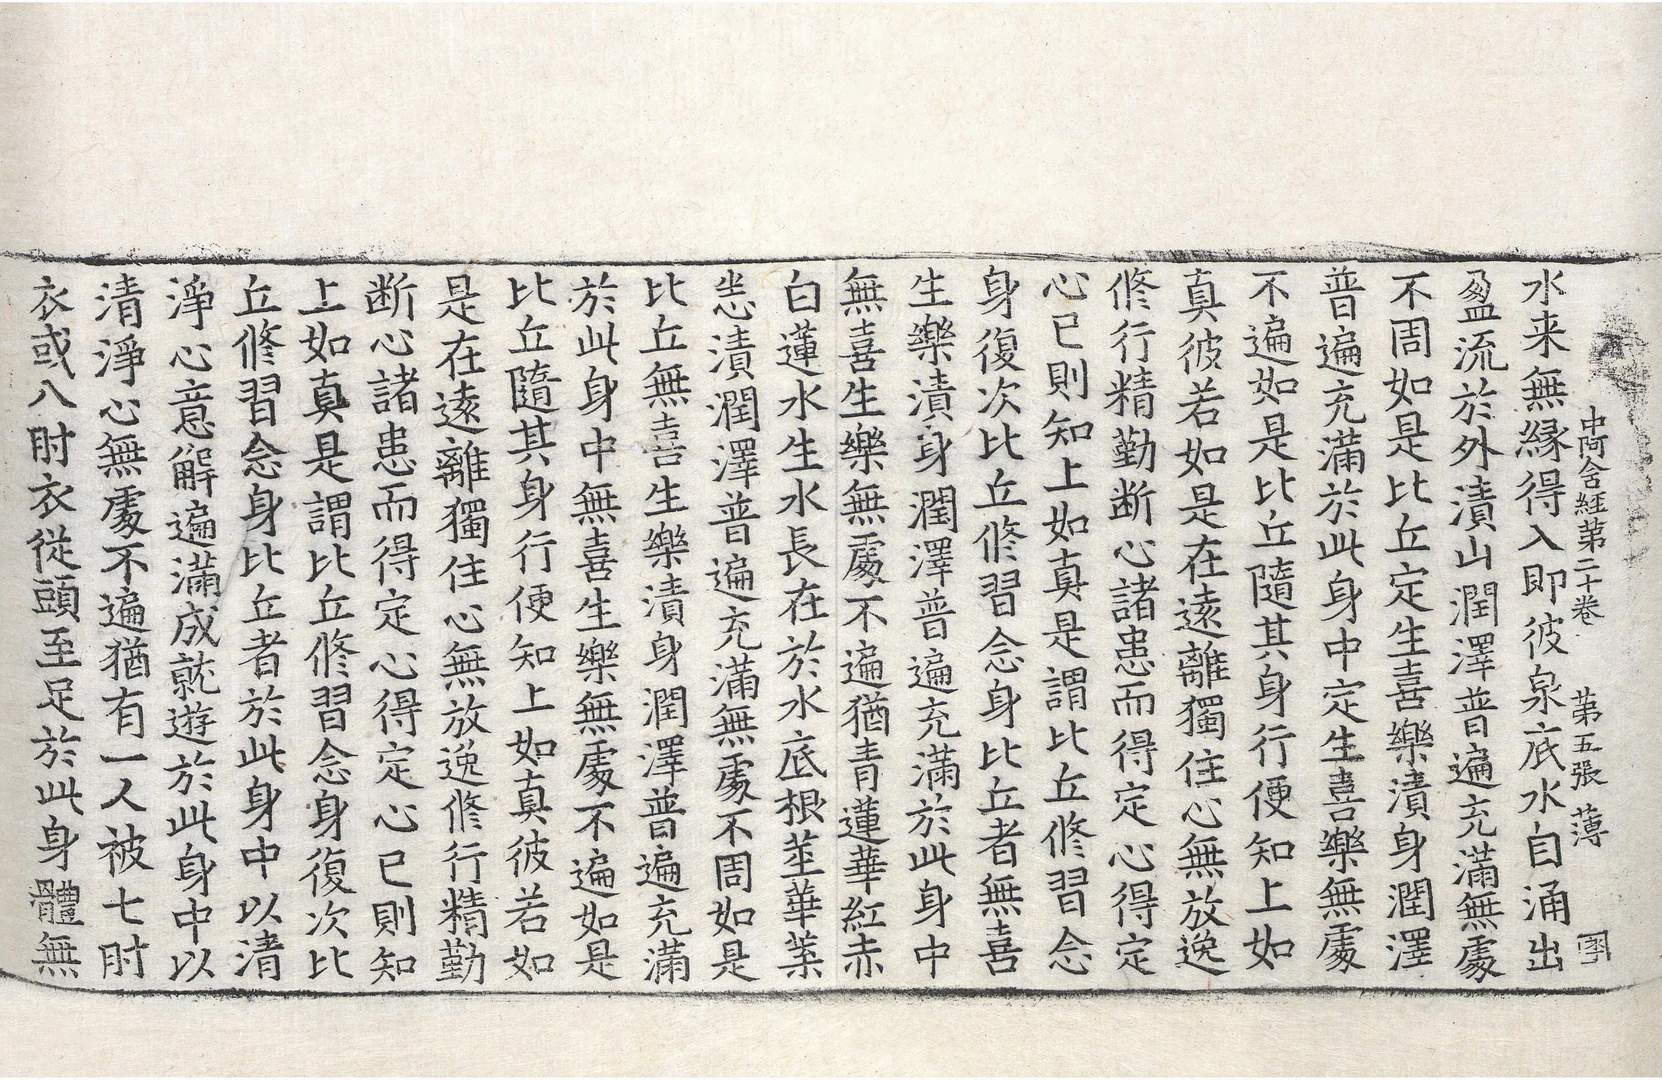 中阿含經第二十卷 第五張 薄
水来無縁得入即彼泉底水自涌出
盈流於外漬山潤澤普遍充滿無處
不周如是比丘定生喜樂漬身潤澤
普遍充滿於此身中定生喜樂無處
不遍如是比丘隨其身行便知上如
真彼若如是在遠離獨住心無放逸
修行精勤断心諸患而得定心得定
心已則知上如真是謂比丘修習念
身復次比丘修習念身比丘者無喜
生樂漬身潤澤普遍充滿於此身中
無喜生樂無處不遍猶青蓮華紅赤
白蓮水生水長在於水底根莖華葉
悉漬潤澤普遍充滿無處不周如是
比丘無喜生樂漬身潤澤普遍充滿
於此身中無喜生樂無處不遍如是
比丘隨其身行便知上如真彼若如
是在遠離獨住心無放逸修行精勤
断心諸患而得定心得定心已則知
上如真是謂比丘修習念身復次比
丘修習念身比丘者於此身中以清
淨心意解遍滿成就遊於此身中以
清淨心無處不遍猶有一人被七肘
衣或八肘衣從頭至足於此身體無